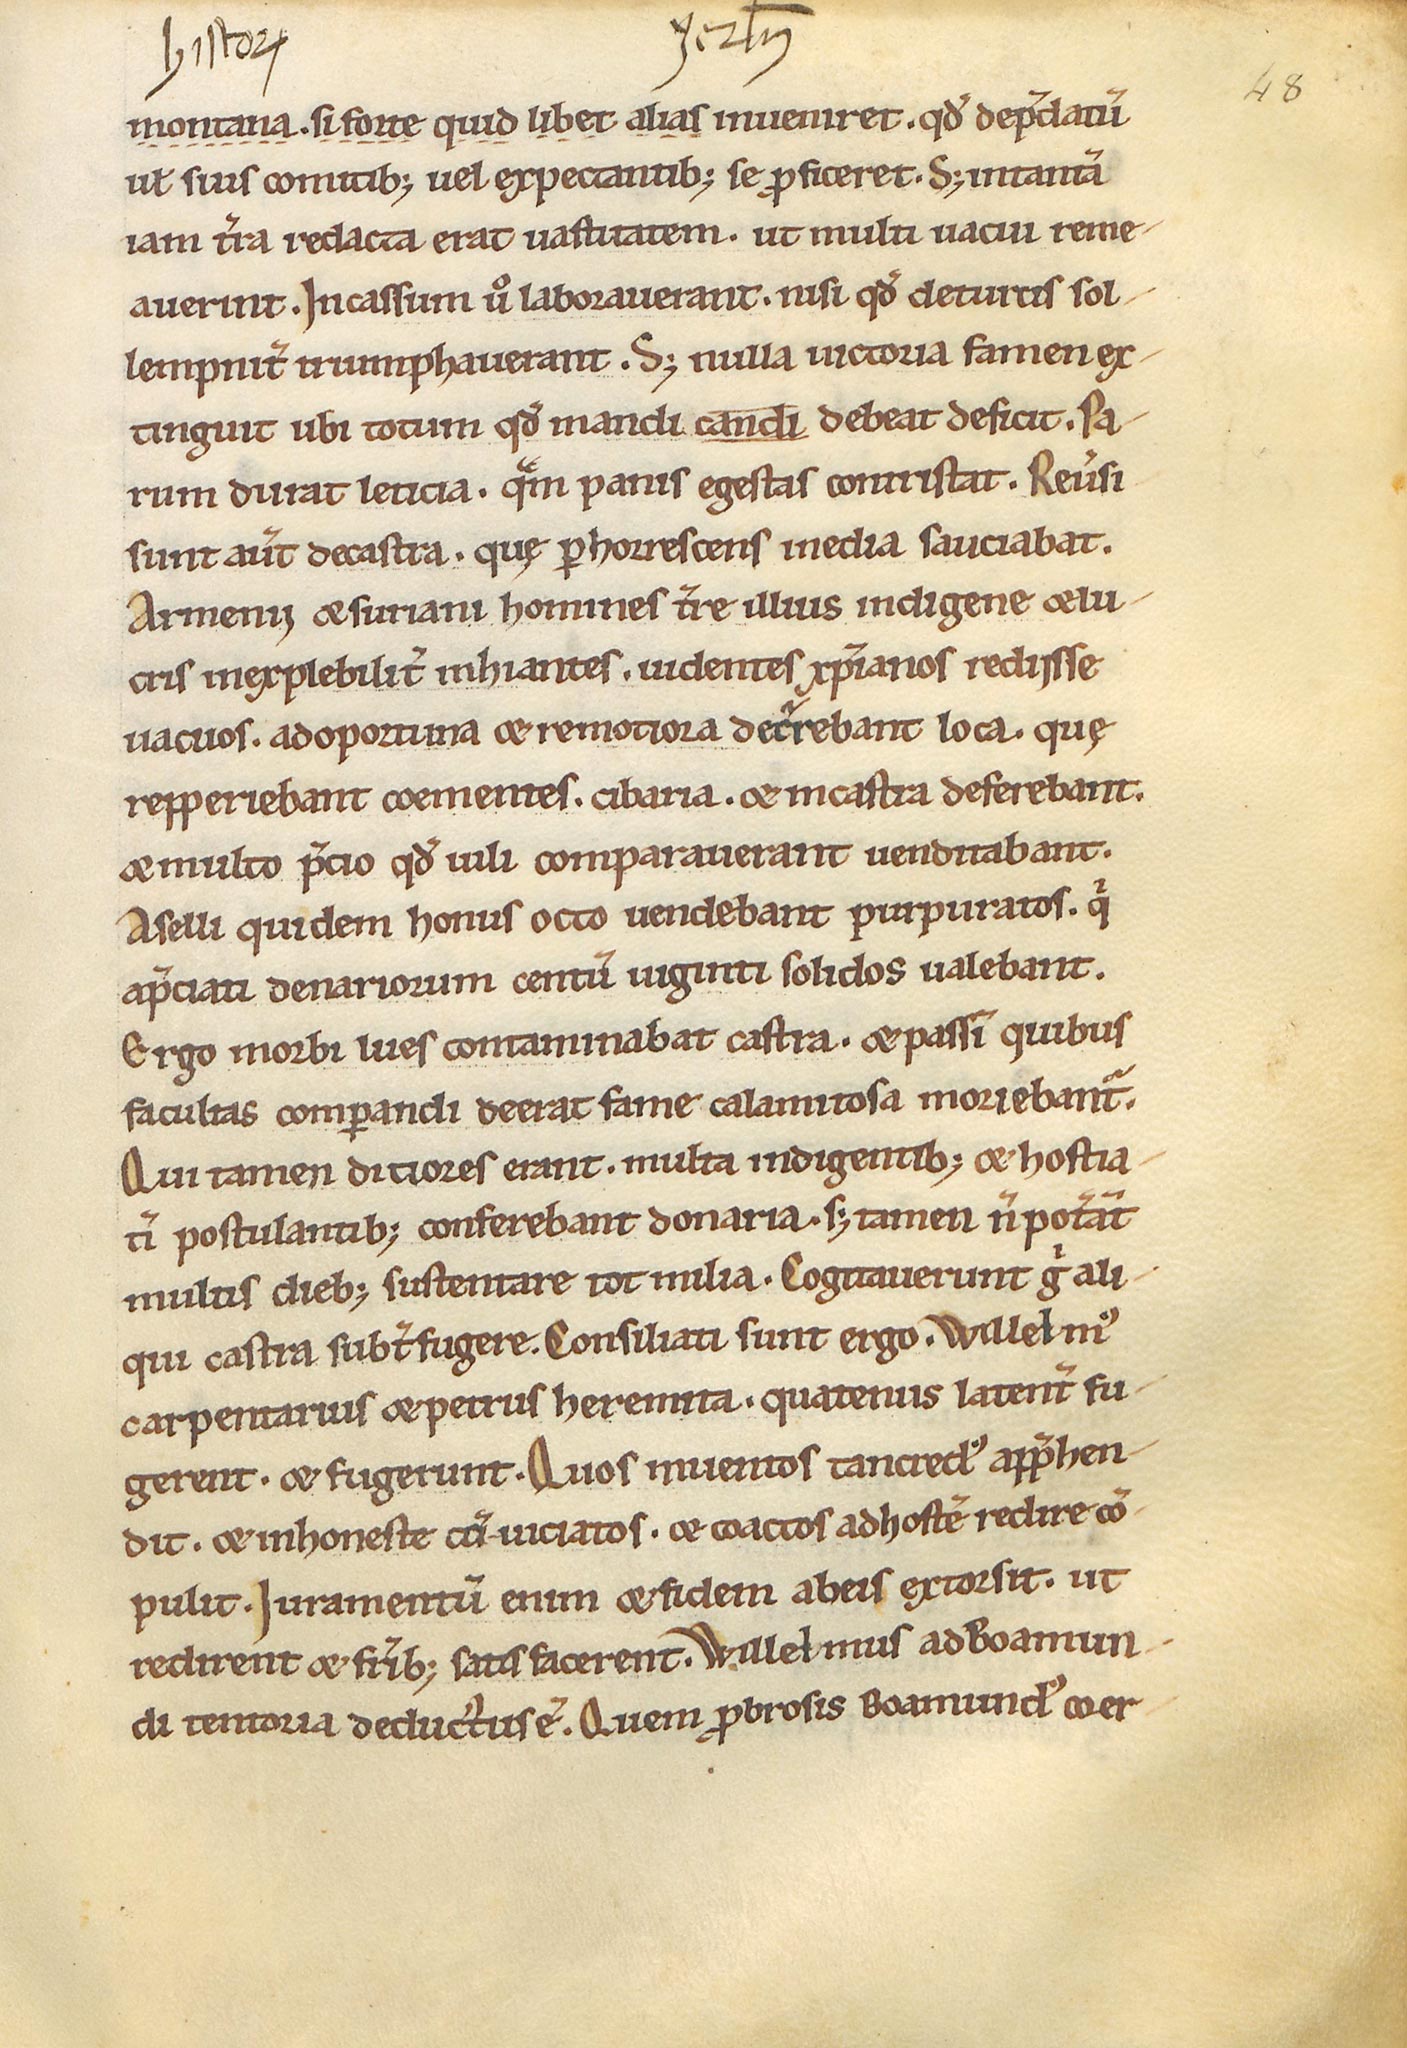 histor⁊ Jerłm
48
montana. si forte quid libet alias inueniret. qđ dep̄datū
uł suis comitib; uel expectantib; se ꝓficeret. S; intantā
iam t̄ra redacta erat uastitatem. ut multi uacui reme-
auerint. Incassum ů laborauerant. nisi qđ deturcis sol-
lempnit̄ triumphauerant. S; nulla uictoria famen ex-
tinguit ubi totum qđ mandi candi debeat deficit. Pa-
rum durat leticia. qm̄ panis egestas contristat. Reūsi
sunt aūt decastra. quę ꝑhorrescens media sauciabat.
Armenij & suriani homines t̄re illius indigene & lu-
cris inexplebilit̄ inhiantes. uidentes xp̄ianos redijsse
uacuos. adoportuna & remotiora dec̄rebant loca. quę
repperiebant coementes. cibaria. & incastra deferebant.
& multo p̄cio qđ uili comparauerant uenditabant.
Aselli quidem honus octo uendebant purpuratos. qͥ
ap̄ciati denariorum centū uiginti solidos ualebant.
Ergo morbi lues contaminabat castra. & passī quibus
facultas comꝑandi deerat fame calamitosa moriebant᷑.
Qui tamen ditiores erant. multa indigentib; & hostia-
tī postulantib; conferebant donaria. s; tamen n̄ pot̄ āt
multis dieb; sustentare tot milia. Cogitauerunt gͥ ali-
qui castra subt̄fugere. Consiliati sunt ergo. Willelmꝰ
carpentarius & petrus heremita. quatenus latent̄ fu-
gerent. & fugerunt. Quos inuentos tancredꝰ app̄hen-
dit. & inhoneste cō uiciatos. & coactos adhostē redire cō-
pulit. Juramentū enim & fidem abeis extorsit. ut
redirent & fr̄ib; satis facerent. Willelmus adBoamun-
di tentoria deductus ē. Quem ꝓbrosis Boamundꝰ coer-